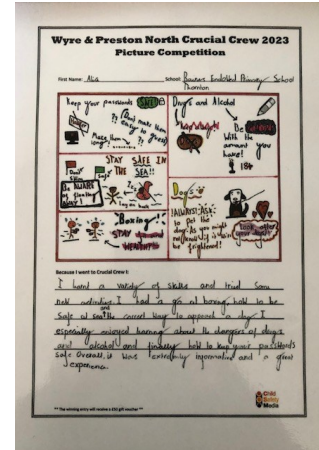 Wyre & Preston North Crucial Crew 2023
Picture Competition
First Name: Alia School: Endowed Primary School
Thornton
Keep your passwords SAFE!
Don't make them easy to guess!
Make them long!
Drugs and Alcohol
Be
With the
amount you
have!
18+
STAY SAFE IN
THE SEA!!
Don't
Swim
Safe
Be AWARE
of floating
away!
Lay on back
"Boxing!"
STAY
Dogs
!ALWAYS! ASK
to pet the
dog. As you might
be frightened!
Look after
your dogs!
Because I went to Crucial Crew I:
I learnt a variety of skills and tried some
new activities. I had a go at boxing, how to be
safe at sea and the correct way to approach a dog. I
especially enjoyed learning about the dangers of drugs
and alcohol and finally how to keep your passwords
safe. Overall, it was extremely informative and a great
experience.
** The winning entry will receive a £50 gift voucher **
Child
Safety
Media